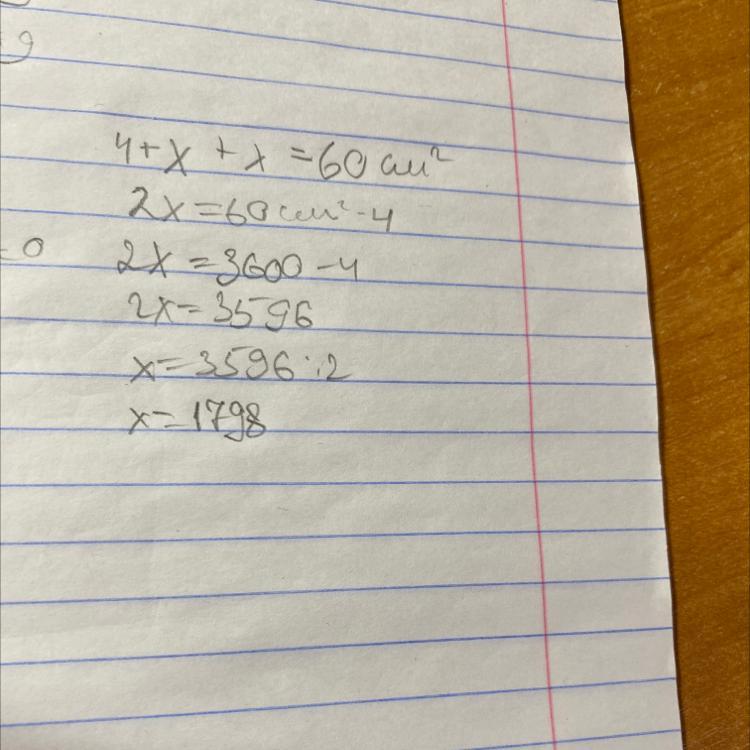 9
4+x+x=60 см²
2x=60 см²-4
=0
2x=3600-4
2x=3596
x=3596:2
x=1798